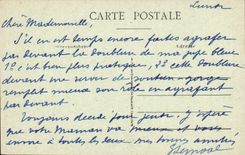 CARTE POSTALE
Lundi
Chère Mademoiselle,
S'il en est temps encore faites agrafer
par devant la doublure de ma jupe bleue
1º c'est bien plus pratique, 2º cette doublure
devant me servir de soutien-gorge
remplit mieux son rôle en agrafant
par devant.
Toujours décidé pour jeudi. J'espère
que votre Maman va mieux et vous
envoie à toutes les deux mes bonnes amitiés